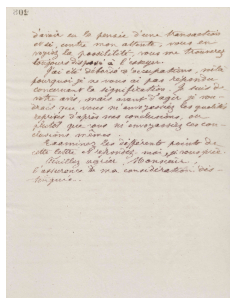 801
d'avoir eu la pensée d'une transaction
et si, contre mon attente, vous en
voyiez la possibilité, vous me trouverez
toujours disposé à l'essayer.
J'ai été débordé d'occupations, voilà
pourquoi je ne vous ai pas répondu
concernant la signification. Je suis de
votre avis, mais avant d'agir je vou-
drais que vous m'envoyassiez les qualités
reprises d'après nos conclusions, ou
plutôt que vous m'envoyassiez ces con-
clusions mêmes.
Examinez les différents points de
cette lettre et répondez moi je vous prie.
Veuillez agréer, Monsieur,
l'assurance de ma considération dis-
tinguée.